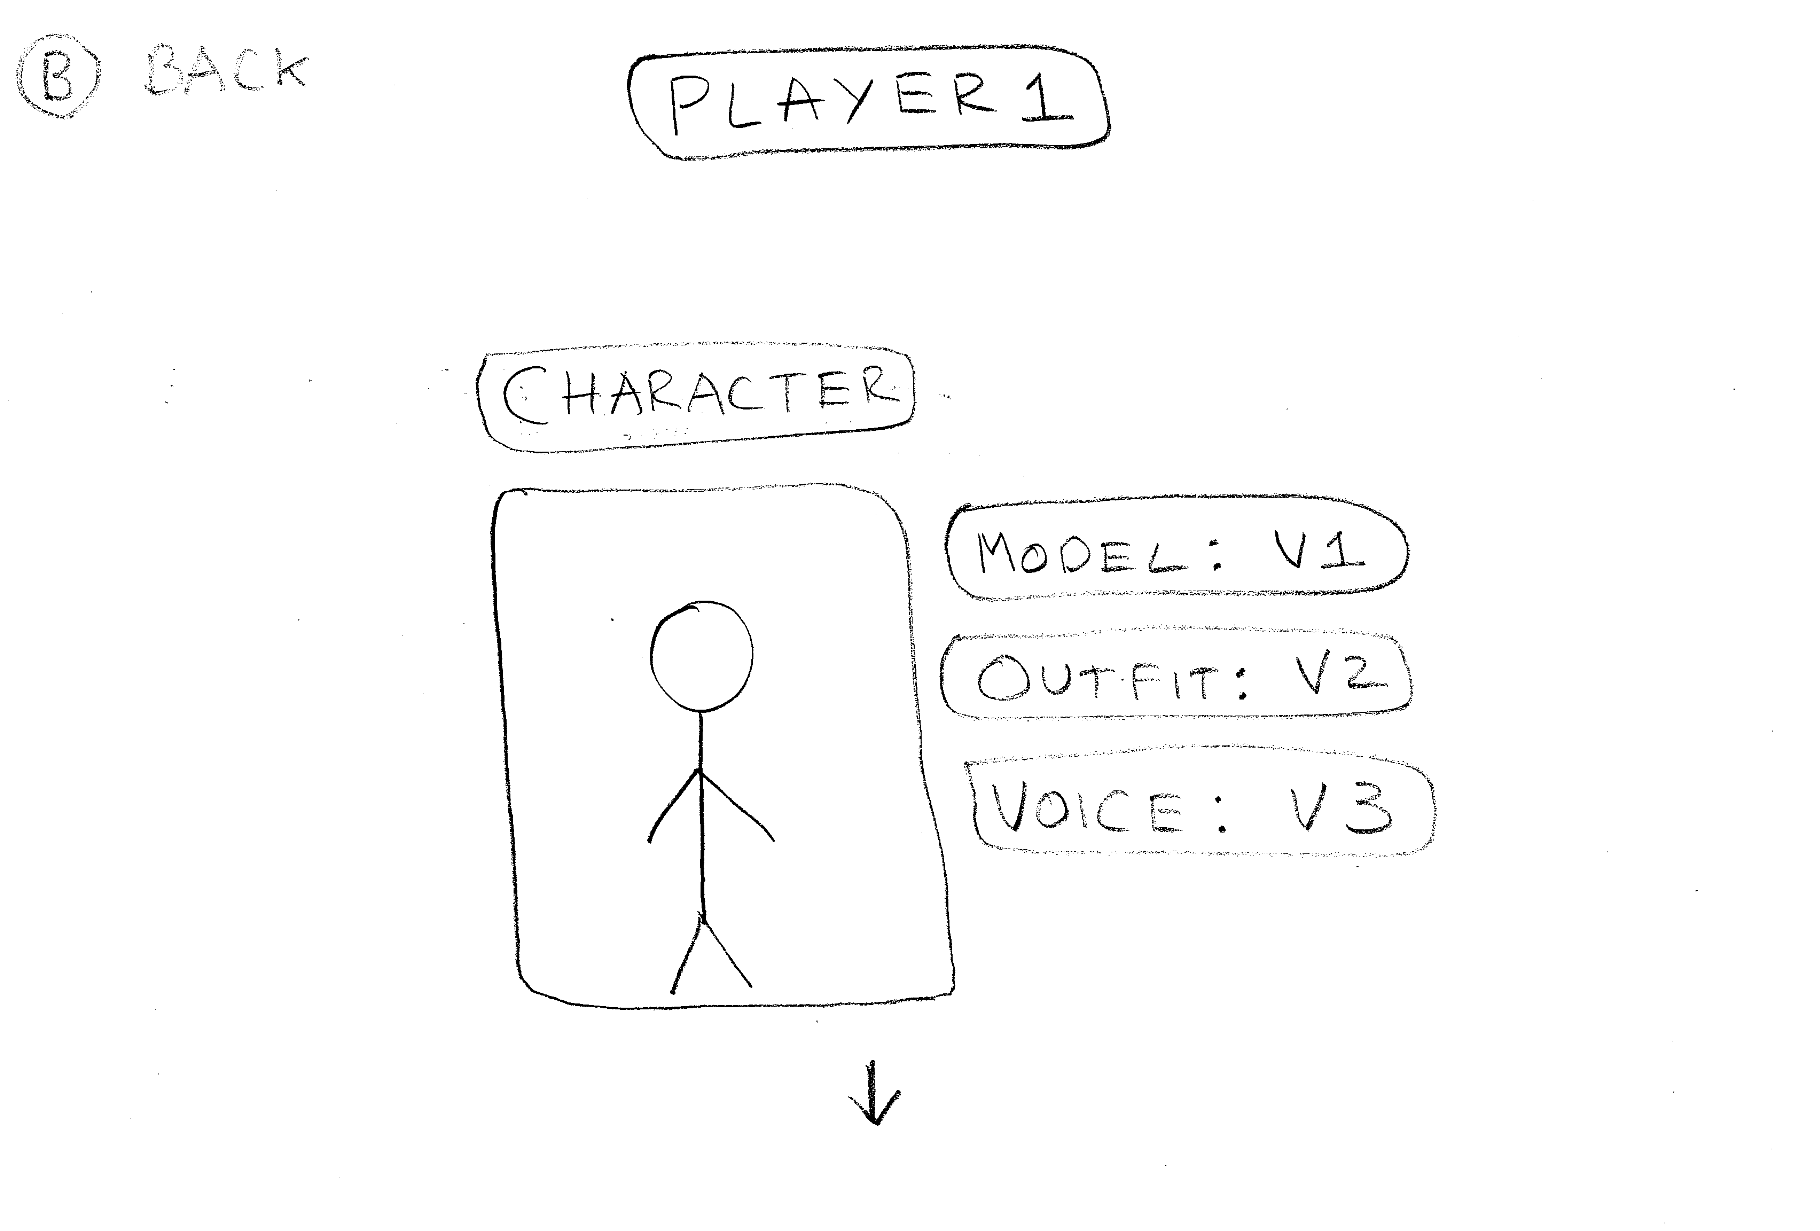 B BACK
PLAYER 1
CHARACTER
MODEL: V1
OUTFIT: V2
VOICE: V3